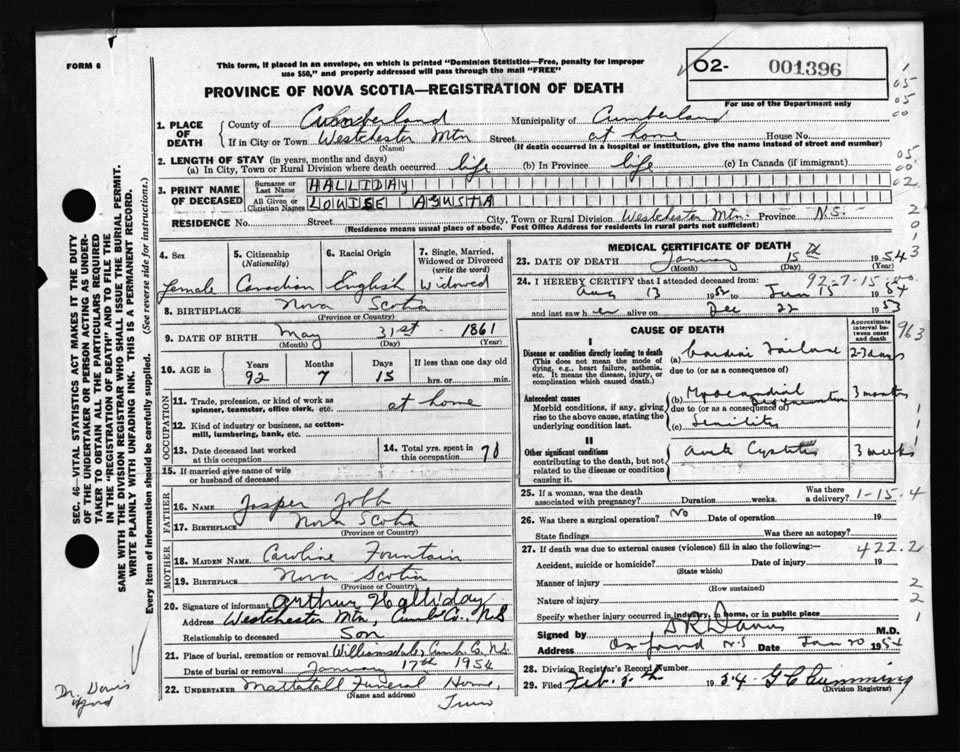 FORM 6
This form, if placed in an envelope, on which is printed "Dominion Statistics—Free, penalty for improper
use $50," and properly addressed will pass through the mail "FREE"
O2- 001396
For use of the Department only
PROVINCE OF NOVA SCOTIA—REGISTRATION OF DEATH
1. PLACE OF DEATH
County of Cumberland Municipality of Cumberland
If in City or Town Westchester Mtn Street at home House No.
(Name) (If death occurred in a hospital or institution, give the name instead of street and number)
2. LENGTH OF STAY (in years, months and days)
(a) In City, Town or Rural Division where death occurred life (b) In Province life (c) In Canada (if immigrant)
3. PRINT NAME OF DECEASED
Surname or Last Name HALLIDAY
All Given or Christian Names LOUISE AGUSTA
RESIDENCE No. Street City, Town or Rural Division Westchester Mtn. Province N.S.
(Residence means usual place of abode. Post Office Address for residents in rural parts not sufficient)
4. Sex female
5. Citizenship (Nationality) Canadian
6. Racial Origin English
7. Single, Married, Widowed or Divorced (write the word) Widowed
8. BIRTHPLACE Nova Scotia
(Province or Country)
9. DATE OF BIRTH May 31st 1861
(Month) (Day) (Year)
10. AGE in Years 92 Months 7 Days 15 If less than one day old hrs. or min.
OCCUPATION
11. Trade, profession, or kind of work as spinner, teamster, office clerk, etc. at home
12. Kind of industry or business, as cotton-mill, lumbering, bank, etc.
13. Date deceased last worked at this occupation
14. Total yrs. spent in this occupation 70
15. If married give name of wife or husband of deceased
FATHER
16. NAME Jasper
17. BIRTHPLACE Nova Scotia
(Province or Country)
MOTHER
18. MAIDEN NAME Caroline Fountain
19. BIRTHPLACE Nova Scotia
(Province or Country)
20. Signature of informant Arthur Halliday
Address Westchester Mtn, Cumb Co., N.S
Relationship to deceased Son
21. Place of burial, cremation or removal Williamsdale, Cumb. Co., N.S.
Date of burial or removal January 17th 1954
22. UNDERTAKER Mattatall Funeral Home,
(Name and address) Truro
MEDICAL CERTIFICATE OF DEATH
23. DATE OF DEATH January 15th 1954
(Month) (Day) (Year)
24. I HEREBY CERTIFY that I attended deceased from:
92-7-15
Aug 13 19 to Jan 15 1954
and last saw her alive on Dec 22 1953
CAUSE OF DEATH
Approximate interval between onset and death
I
Disease or condition directly leading to death
(This does not mean the mode of dying, e.g., heart failure, asthenia, etc. It means the disease, injury, or complication which caused death.)
(a) Cardiac Failure 2-3 days
due to (or as a consequence of)
Antecedent causes
Morbid conditions, if any, giving rise to the above cause, stating the underlying condition last.
(b) Myocardial Degeneration 3 months
due to (or as a consequence of)
(c) Senility
II
Other significant conditions
contributing to the death, but not related to the disease or condition causing it.
Acute Cystitis 3 weeks
25. If a woman, was the death associated with pregnancy? Duration weeks. Was there a delivery?
1-15-4
26. Was there a surgical operation? No Date of operation 19
State findings Was there an autopsy?
27. If death was due to external causes (violence) fill in also the following:—
422.2
Accident, suicide or homicide? Date of injury 19
(State which)
Manner of injury
(How sustained)
Nature of injury
Specify whether injury occurred in industry, in home, or in public place
Signed by D R Davis M.D.
Address Oxford N.S Date Jan 20 1954
28. Division Registrar's Record Number
29. Filed Feb. 1954 G C Cumming
(Division Registrar)
SEC. 46—VITAL STATISTICS ACT MAKES IT THE DUTY
OF THE UNDERTAKER OR PERSON ACTING AS UNDER-
TAKER TO OBTAIN ALL THE PARTICULARS REQUIRED
IN THE "REGISTRATION OF DEATH" AND TO FILE THE
SAME WITH THE DIVISION REGISTRAR WHO SHALL ISSUE THE BURIAL PERMIT.
WRITE PLAINLY WITH UNFADING INK. THIS IS A PERMANENT RECORD.
Every item of information should be carefully supplied. (See reverse side for instructions.)
Dr. Davis